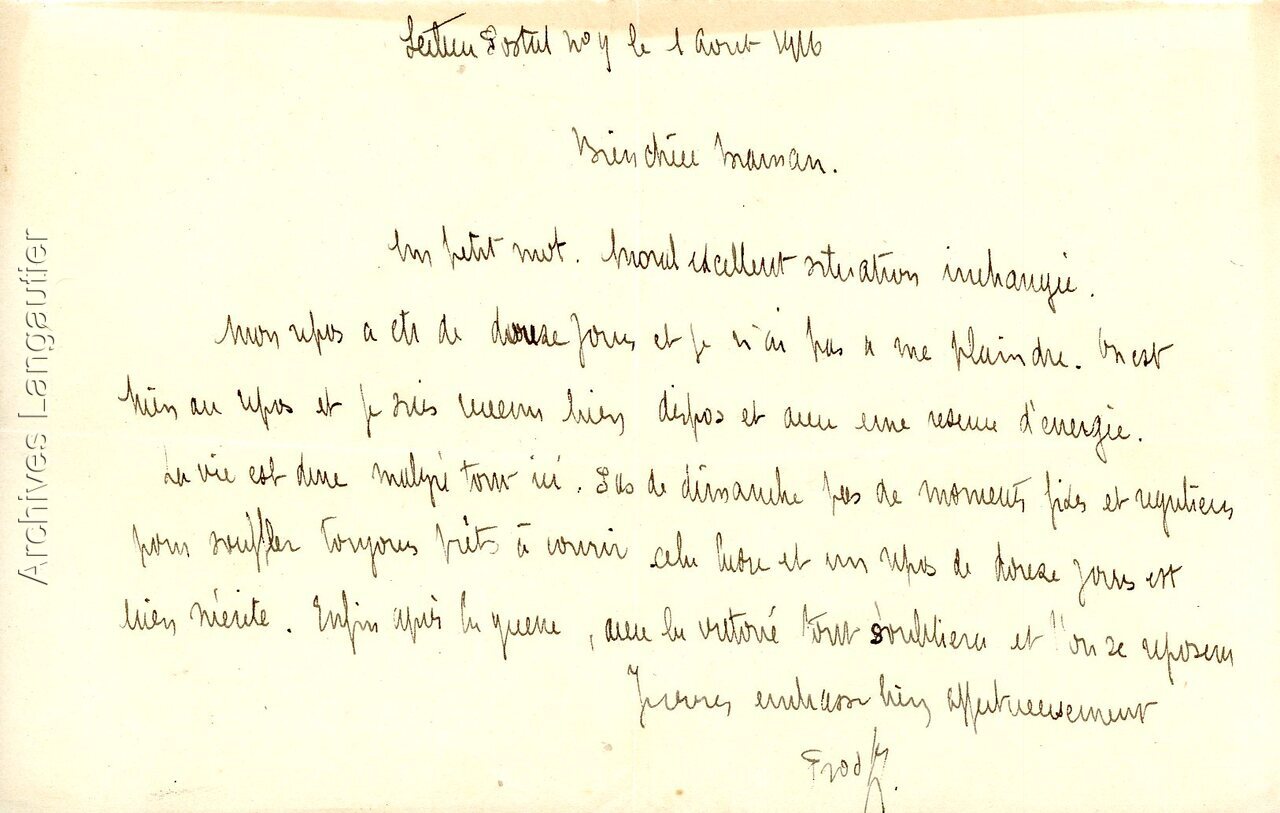 Secteur Postal nº 9 le 1 Aout 1916
Bien chère Maman.
Un petit mot. Moral excellent situation inchangée.
Mon repos a ete de douze jours et je n'ai pas a me plaindre. On est
bien au repos et je suis revenu bien dispos et avec une reserve d'énergie.
La vie est dure malgré tout ici. Pas de dimanche pas de moments fixes et reguliers
pour souffler toujours prêts à courir cela lasse et un repos de douze jours est
bien mérité. Enfin après la guerre, avec la victoire tout s'oubliera et l'on se reposera
Je vous embrasse bien affectueusement
Archives Langautier